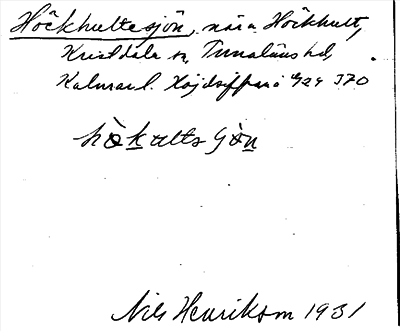 Höckhultesjön, nära Höckhult,
Kristdala sn, Tunaläns hd,
Kalmar l. Höjdsiffra i 424 370
hòkults jön
Nils Henrikson 1931